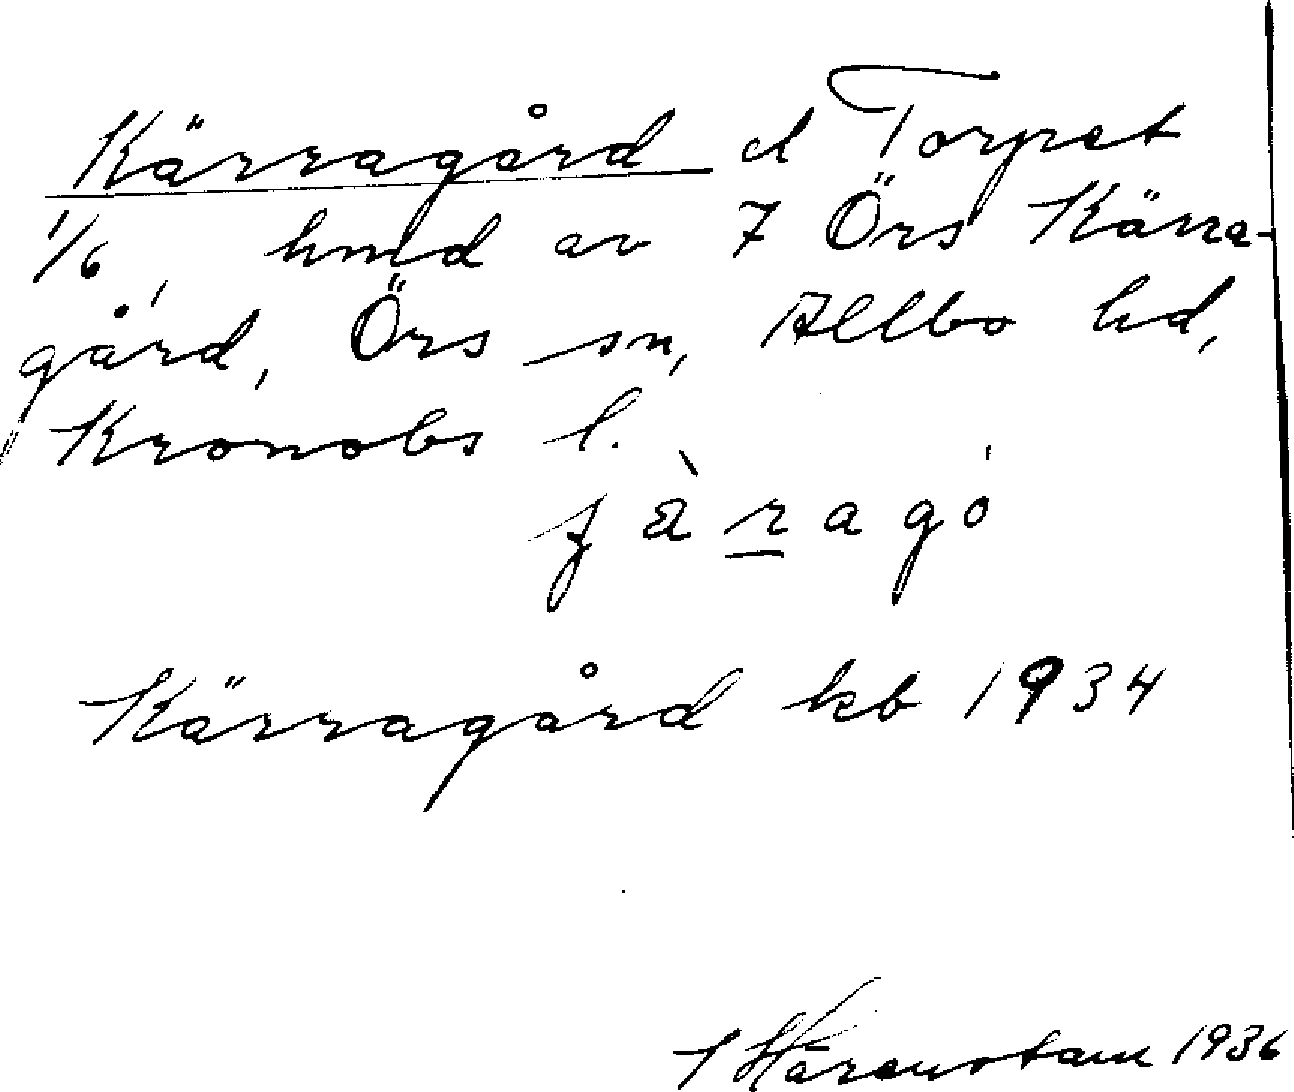 Kärragård el Torpet
1/6, hmd av 7 Örs Kärra-
gård, Örs sn, Allbo hd,
Kronobs l.
Kärragård kb 1934
1936